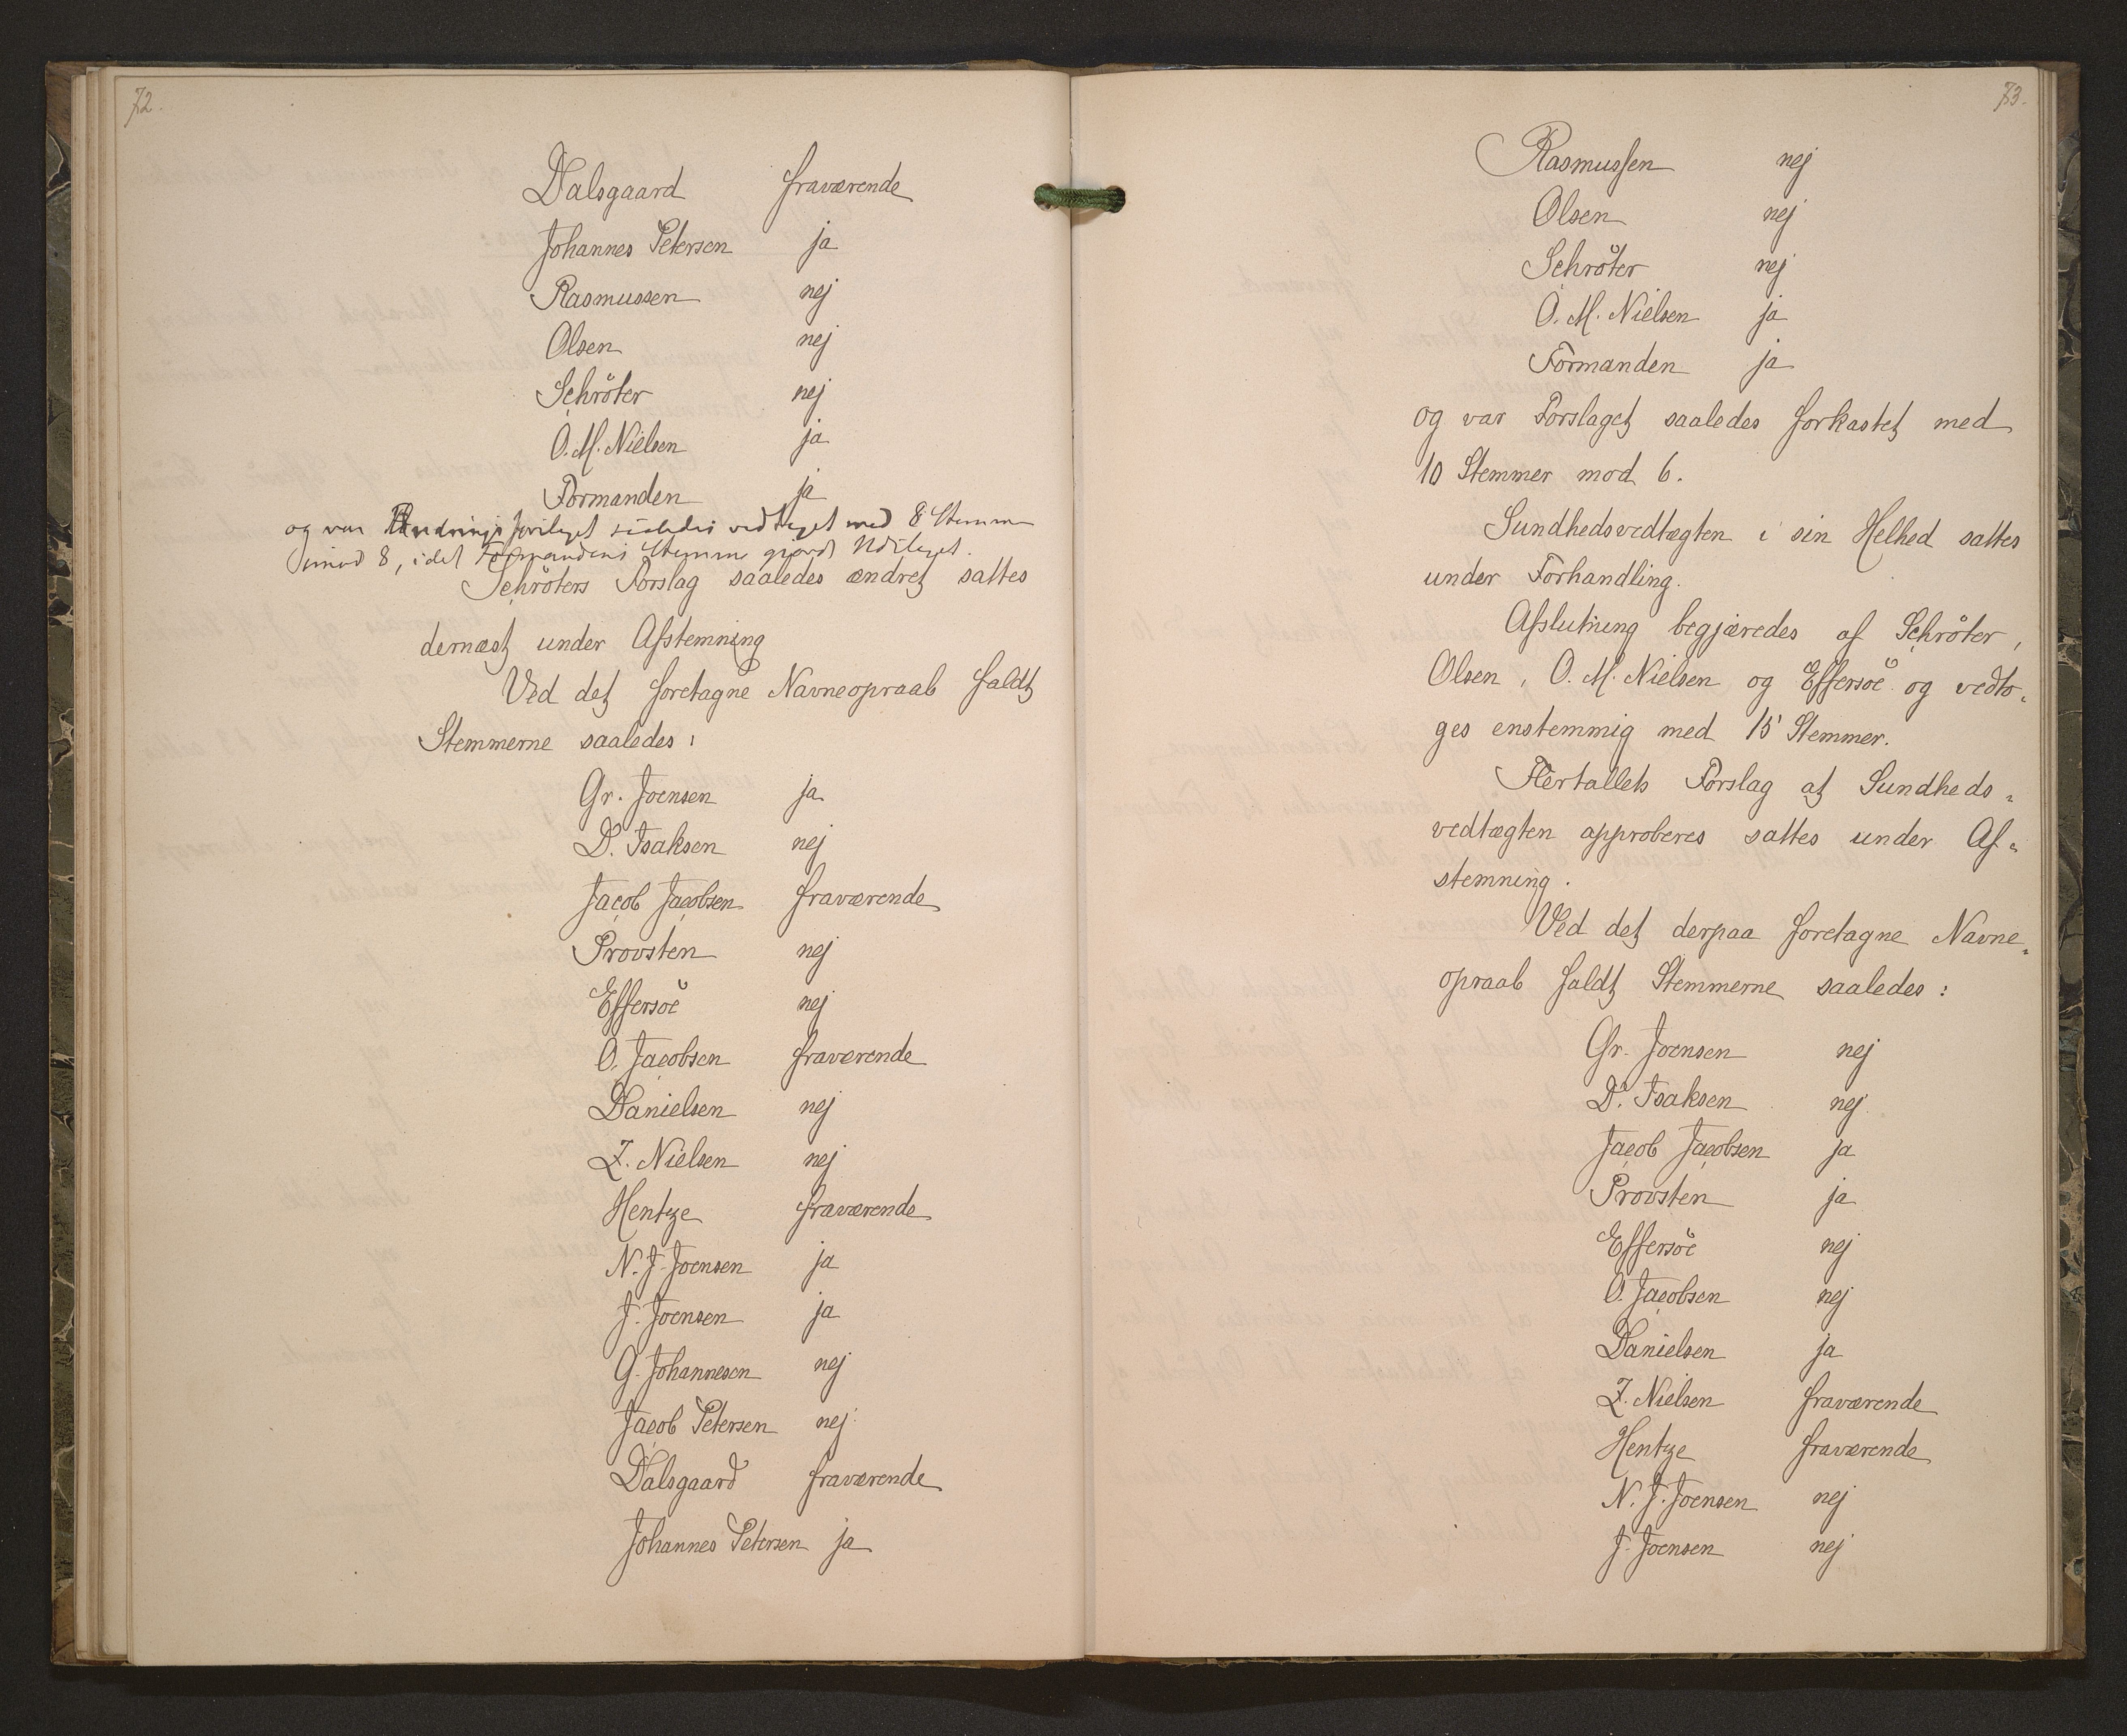 72.
Dalsgaard fraværende
Johannes Petersen ja
Rasmussen nej
Olsen nej
Schröter nej
O. M. Nielsen ja
Formanden ja
og var Ændringsforslaget saaledes vedtaget med 8 Stemmer
imod 8, idet Formandens Stemme gjorde Udslaget.
Schröters Forslag saaledes ændret sattes
dernæst under Afstemning
Ved det foretagne Navneopraab faldt
Stemmerne saaledes:
Gr. Joensen ja
D. Isaksen nej
Jacob Jacobsen fraværende
Provsten nej
Effersöe nej
O. Jacobsen fraværende
Danielsen nej
Z. Nielsen nej
Hentze fraværende
N. J. Joensen ja
J. Joensen ja
G. Johannesen nej
Jacob Petersen nej
Dalsgaard fraværende
Johannes Petersen ja
73.
Rasmussen nej
Olsen nej
Schröter nej
O. M. Nielsen ja
Formanden ja
og var Forslaget saaledes forkastet med
10 Stemmer mod 6.
Sundhedsvedtægten i sin Helhed sattes
under Forhandling.
Afslutning begjæredes af Schröter,
Olsen, O. M. Nielsen og Effersöe og vedto-
ges enstemmig med 15 Stemmer.
Flertallets Forslag at Sundheds-
vedtægten approberes sattes under Af-
stemning.
Ved det derpaa foretagne Navne-
opraab faldt Stemmerne saaledes:
Gr. Joensen nej
D. Isaksen nej
Jacob Jacobsen ja
Provsten ja
Effersöe nej
O. Jacobsen nej
Danielsen ja
Z. Nielsen fraværende
Hentze fraværende
N. J. Joensen nej
J. Joensen nej